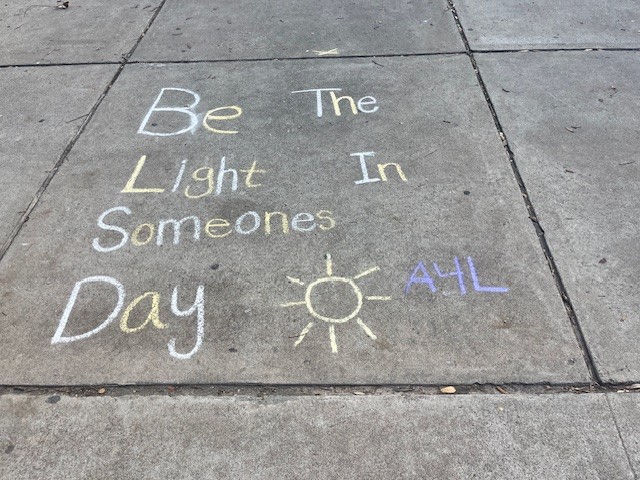 Be The
Light In
Someones
Day A4L